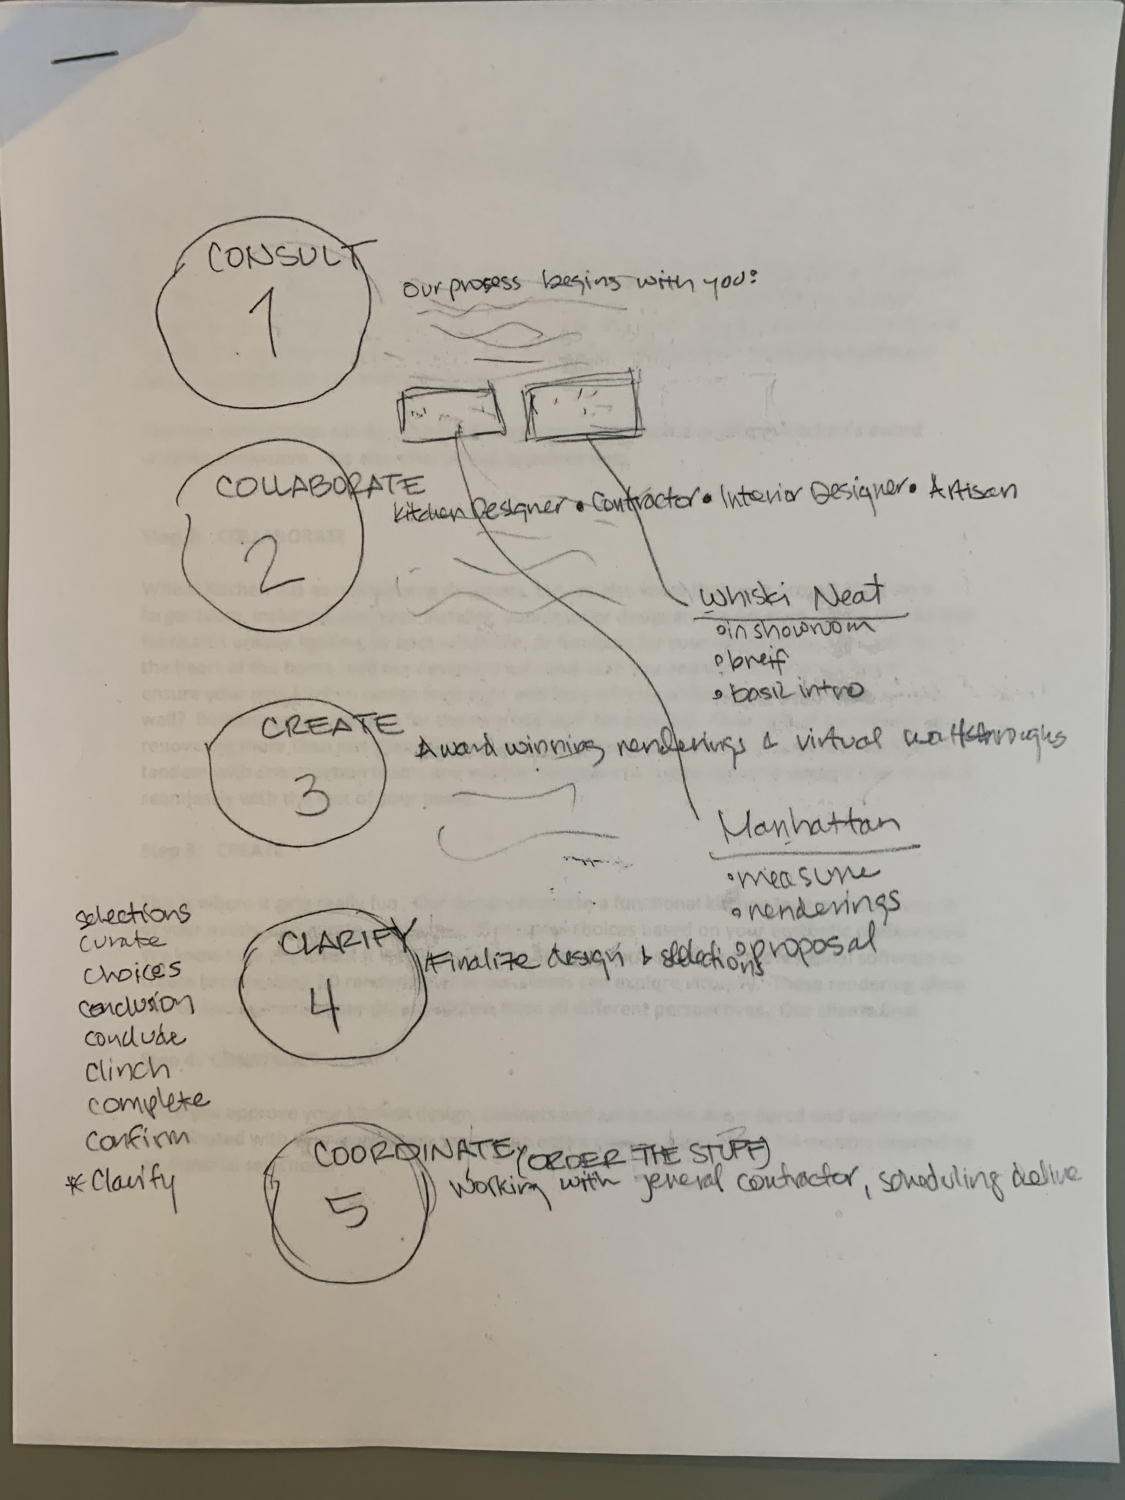 CONSULT
1
Our process begins with you:
COLLABORATE
Kitchen Designer • Contractor • Interior Designer • Artisan
2
Whiski Neat
• in showroom
• breif
• basic intro
CREATE
Award winning renderings & virtual walkthroughs
3
Manhattan
• measure
• renderings
• proposal
selections
curate
choices
conclusion
conclude
clinch
complete
confirm
* Clarify
CLARIFY
Finalize design & selections
4
COORDINATE (ORDER THE STUFF)
Working with general contractor, scheduling delive
5